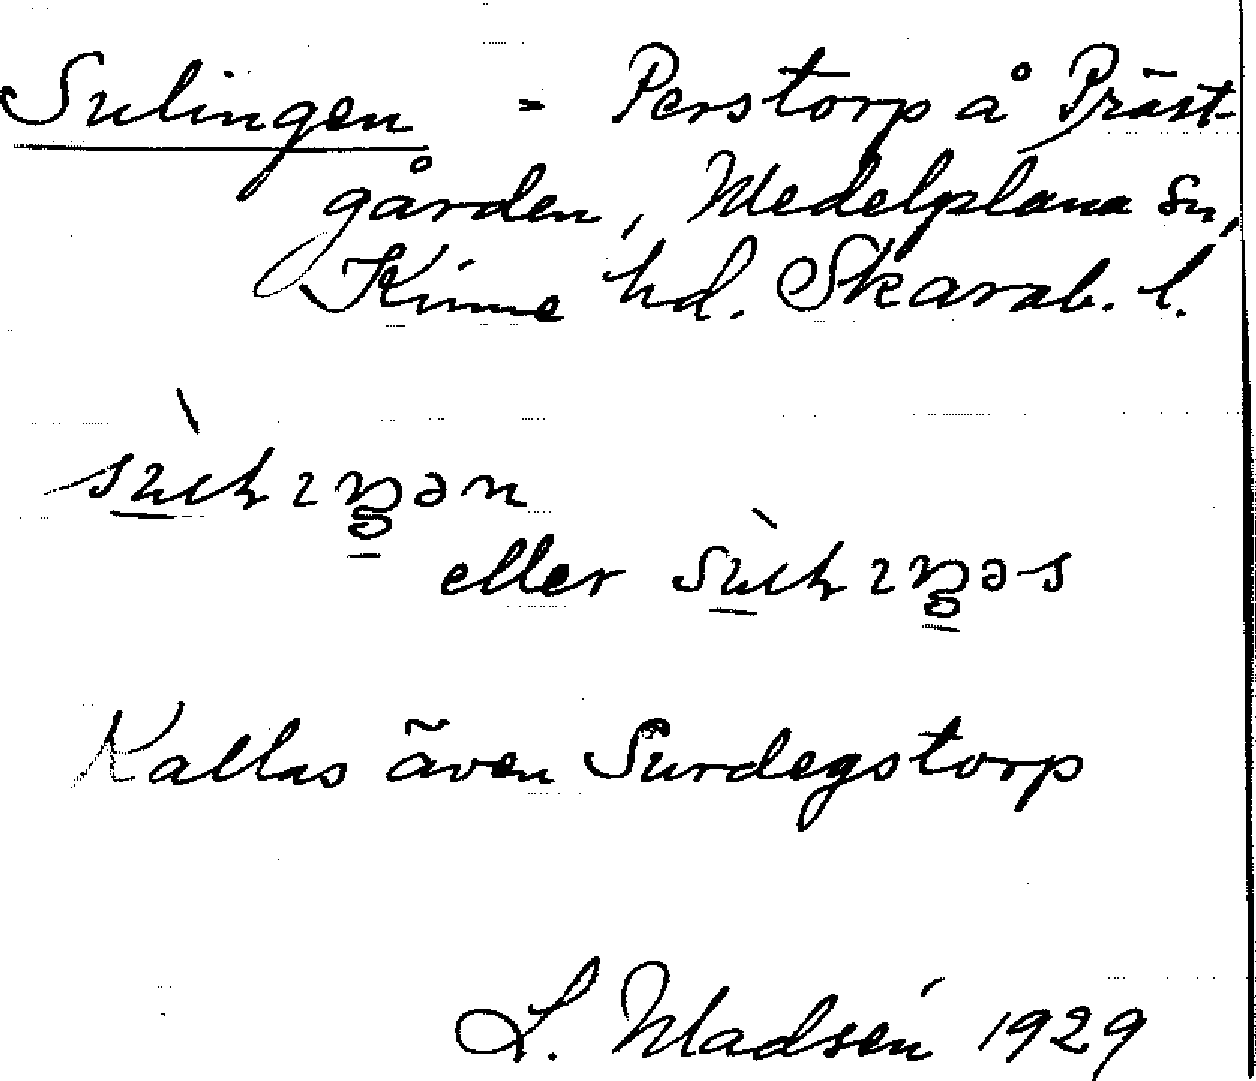 Sulingen = Perstorp å Präst-
gården, Medelplana sn,
Kinne hd. Skarab. l.
eller
Kallas även Surdegstorp
L. Madsén 1929